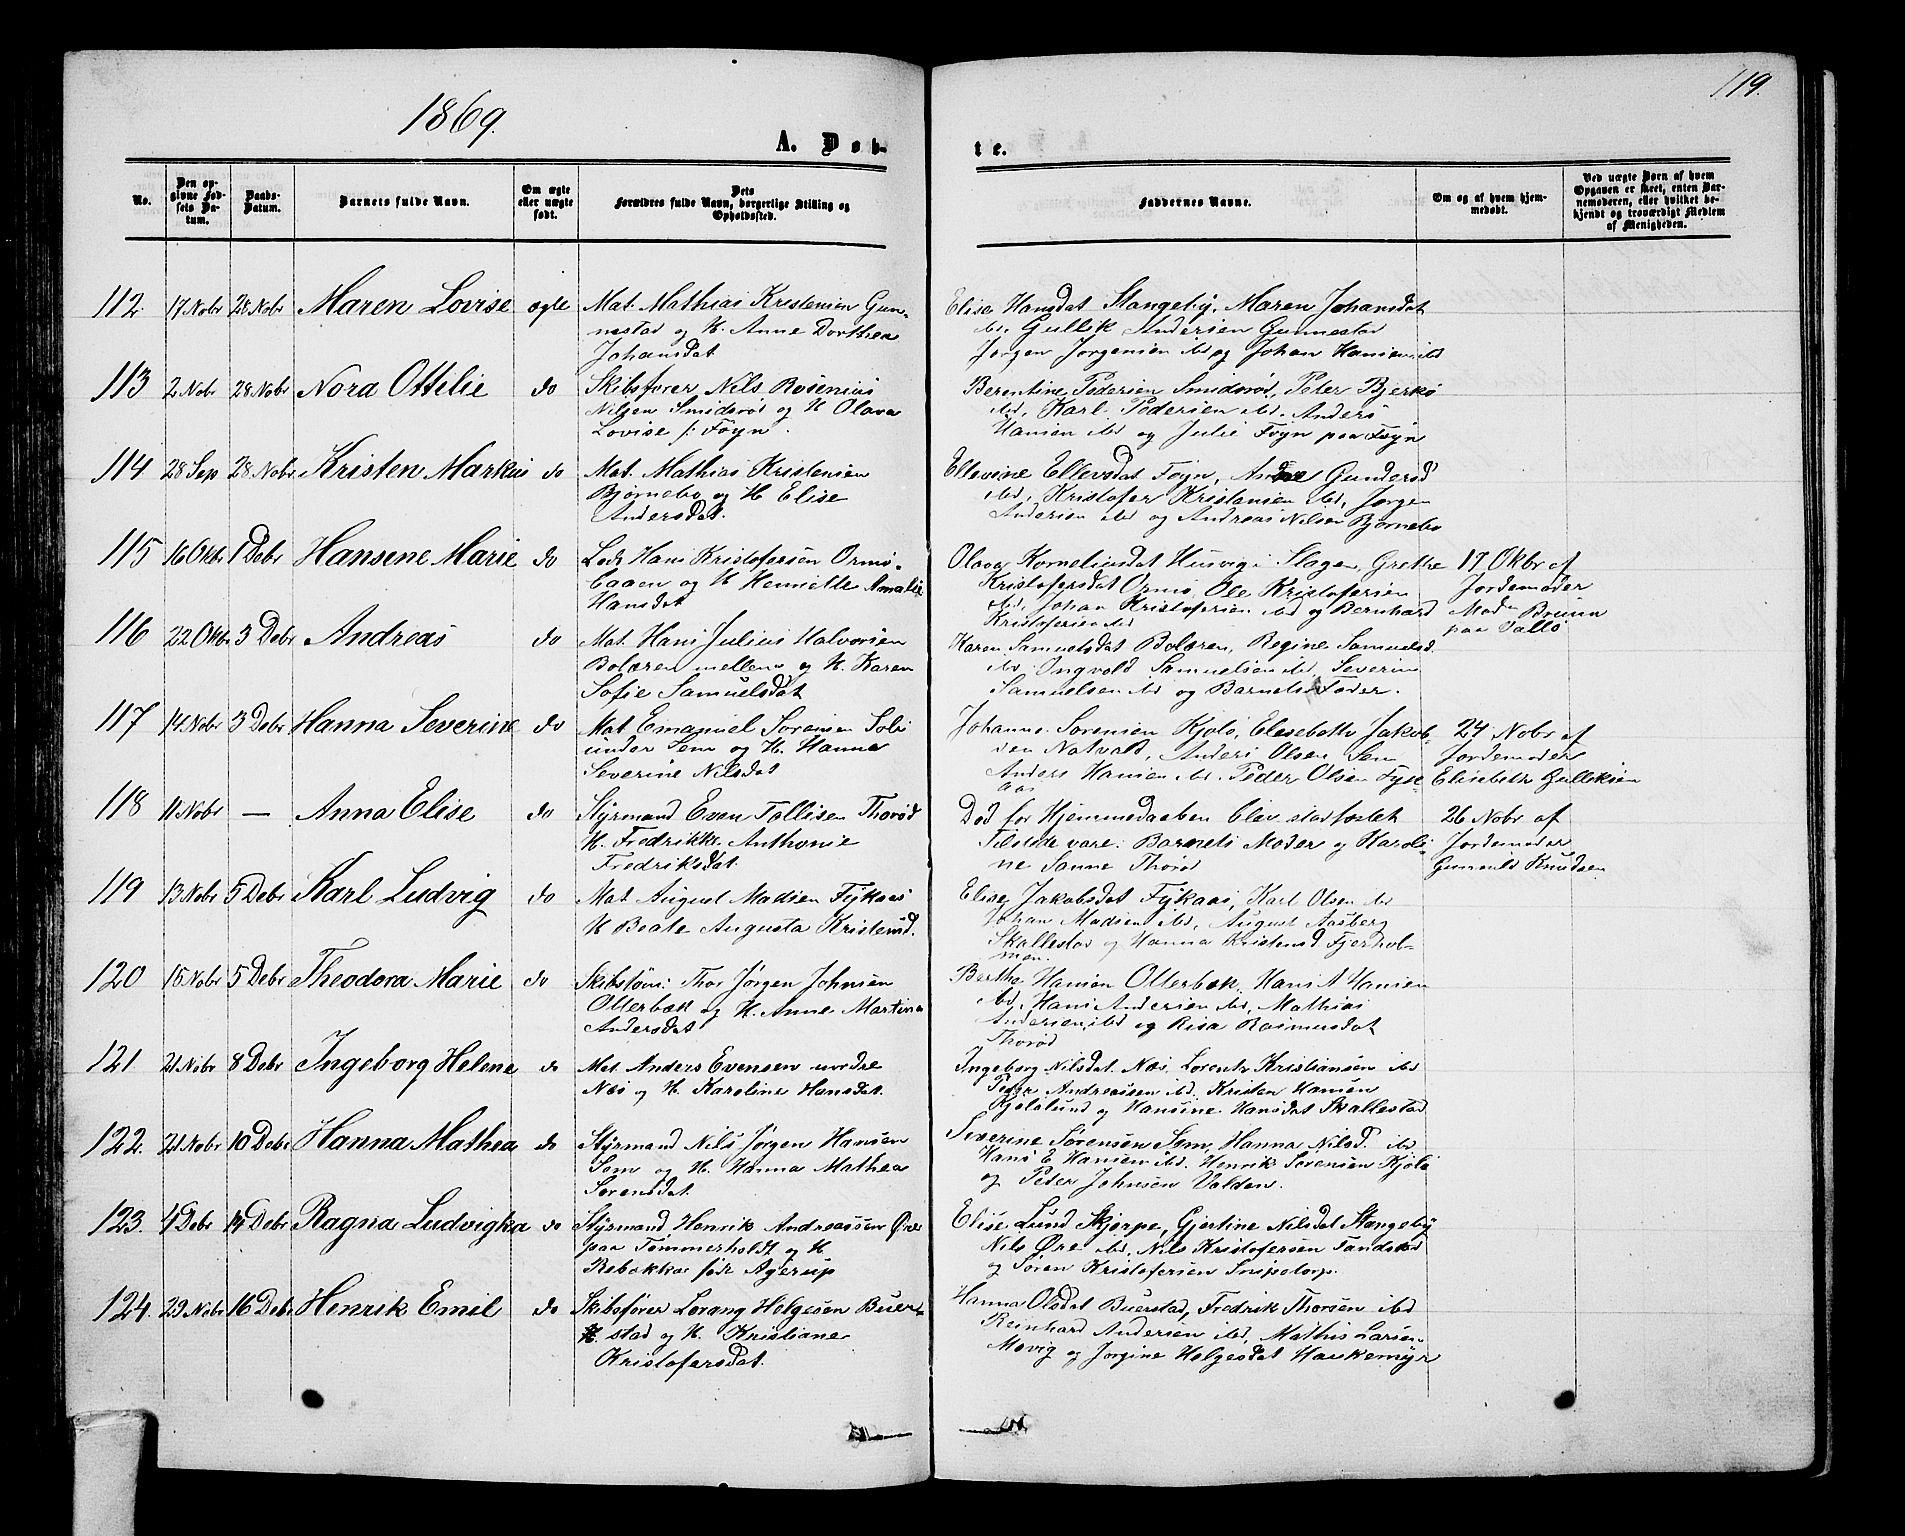 1869.
119.
A. Døb-
te.
No.
Den op-
givne Fød-
sels Da-
tum.
Daabs-
Datum.
Barnets fulde Navn.
Om ægte
eller uægte
født.
Dets
Forældres fulde Navn, borgerlige Stilling og
Opholdssted.
Faddernes Navne.
Om og af hvem hjem-
medøbt.
Ved uægte Børn af hvem
Opgaven er skeet, enten Bar-
nemoderen, eller hvilket be-
kjendt og troværdigt Medlem
af Menigheden.
112. 17 Nobr 28 Nobr Maren Lovise ægte
Mat. Mathias Kristensen Gun-
nestad og H. Anne Dorthea
Johansdat
Elise Hansdat Stangeby, Maren Johansdat
ibd. Gullik Andersen Gunnestad
Jørgen Jørgensen ibd og Johan Hansen ibd
113 2 Nobr 28 Nobr Nora Ottilie do
Skibsfører Nils Rosenius
Nilsen Smidsrød og H Olava
Lovise f: Føyn.
Berentine Pedersen Smidsrød, Peter Bjerkø
ibd, Karl Pedersen ibd. Anders
Hansen ibd og Julie Føyn paa Føyn
114 28 Sep 28 Nobr Kristen Markus do
Mat. Mathias Kristensen
Bjørnebo og H Elise
Andersdat.
Ellevine Ellevsdat Føyn, Gundersd
ibd, Kristofer Kristensen ibd, Jørgen
Andersen ibd og Andreas Nilsen Bjørnebo
115 16 Okbr 1 Debr Hansene Marie do
Lods Hans Kristofersen Ormø-
og H Henriette Amalie
Hansdat
Olava Kornelius​dat Husvig i Slagen, Grethe
Kristofersdat Ormø, Ole Kristofersen
ibd, Johan Kristofersen ibd og Bernhard
Kristofersen ibd
17 Okbr af
Jordemoder
Mad. Bruun
paa Vallø
116 22 Okbr 3 Debr Andreas do
Mat. Hans Julius Halvorsen
Bolæren mellem og H. Karen
Sofie Samuelsdat
Karen Samuelsdat Bolæren, Regine Samuelsd.
ibd. Ingvold Samuelsen ibd, Severin
Samuelsen ibd og Barnets Fader.
117 14 Nobr 3 Debr Hanna Severine do
Mat Emanuel Sørensen
under Sem og H. Hanna
Severine Nilsdat
Johanne Sørensen Kjølø, Elesebeth Jakob-
sen Natvald, Anders Olsen Sem
Anders Hansen ibd. Peder Olsen Fyk-
aas
24 Nobr af
Jordemoder
Elisebeth Gulliksen
118 11 Nobr — Anna Elise do
Styrmand Even Tollisen Thorød
H. Fredrikke Anthonie
Fredriksdat.
Død før Hjemmedaaben blev stadfæstet
Tilstede vare: Barnets Moder og Karoli-
ne Sanne Thorød
26 Nobr af
Jordemoder
Gunhild Knudsen
119 13 Nobr 5 Debr Karl Ludvig do
Mat August Madsen Fykaas
H Beate Augusta Kristensd.
Elise Jakobsdat Fykaas, Karl Olsen ibd
Johan Madsen ibd, August Aasberg
Skallestad og Hanna Kristensd Fjerhol-
men.
120 15 Nobr 5 Debr Theodora Marie do
Skibsfører Thor Jørgen Johnsen
Otterbæk og H. Anne Martina
Andersdat
Berthe Hansen Otterbæk, Hans A Hansen
ibd, Hans Andersen ibd, Mathias
Andersen ibd og Risa Rasmusdat
Thorød
121 21 Nobr 8 Debr Ingeborg Helene do
Mat Anders Evensen nordre
Næs og H. Karoline Hansdat.
Ingeborg Nilsdat Næs, Lorents Kristiansen ibd
Peder Andreassen ibd. Kristen Hansen
Kjølelund og Hansine Hansdat Skallestad
122. 21 Nobr 10 Debr Hanna Mathea do
Styrmand Nils Jørgen Hansen
Sem og H. Hanna Mathea
Sørensdat.
Severine Sørensen Sem, Hanna Nilsd. ibd
Hans E Hansen ibd. Henrik Sørensen Kjølø
og Peter Johnsen Valden.
123. 4 Debr 14 Debr Ragna Ludvigka do
Styrmand Henrik Andreassen Øre
paa Tømmerholdt og H
Rebekka født Agerup
Elise Lund Skjerpe, Gjertine Nilsdat Stangeby
Nils Øre ibd. Nils Kristofersen
og Søren Kristofersen Snipetorp.
124. 29 Nobr 16 Debr Henrik Emil do
Skibsfører Lorang Helgesen Buer-
stad og H. Kristiane
Kristofersdat.
Hanna Olsdat Buerstad, Fredrik Thorsen ibd
Reinhard Andersen ibd, Mathis Larsen
Movig og Jørgine Helgesdat Haukemyr